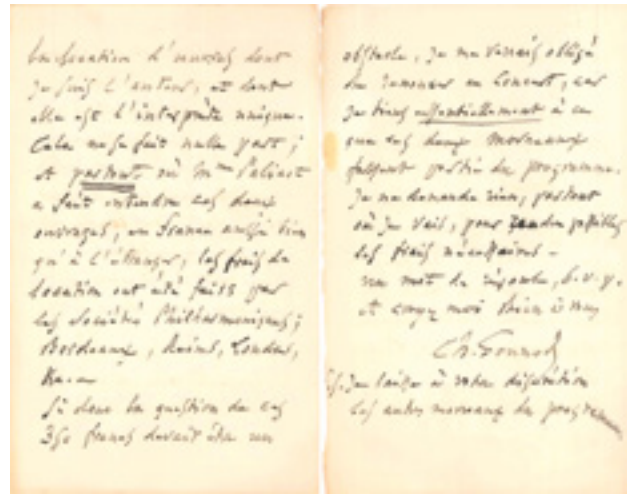 la location d'œuvres dont
je suis l'auteur, et dont
elle est l'interprète unique.
Cela ne se fait nulle part ;
et partout où Mme Palicot
a fait entendre ces deux
ouvrages, en France aussi bien
qu'à l'étranger, les frais de
location ont été faits par
les Sociétés Philharmoniques ;
Bordeaux, Reims, Londres,
&a..
Si donc la question de ces
350 francs devait être un
obstacle, je me verrais obligé
de renoncer au Concert, car
je tiens essentiellement à ce
que ces deux morceaux
fassent partie du programme.
Je ne demande rien, partout
où je vais, pour
les frais nécessaires -
un mot de réponse, s.v.p.
et croyez moi bien à vous
Ch. Gounod
P.S. Je laisse à votre discrétion
les autres morceaux du programme.